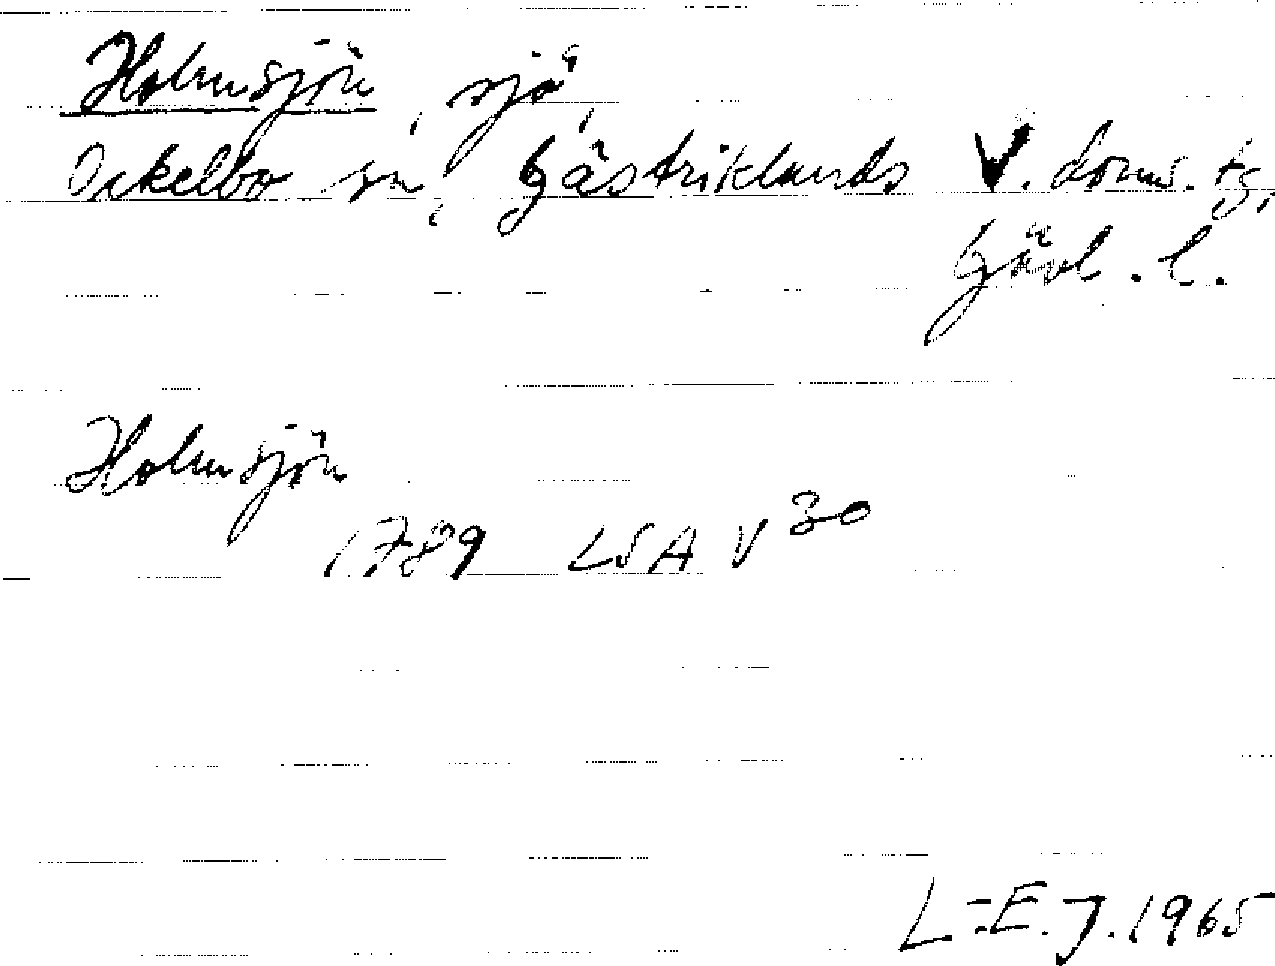 Holmsjön, sjö,
Ockelbo sn, Gästriklands V. doms. tg,
Gävl. l.
Holmsjön
1789 LSA V 30
L.-E. J. 1965